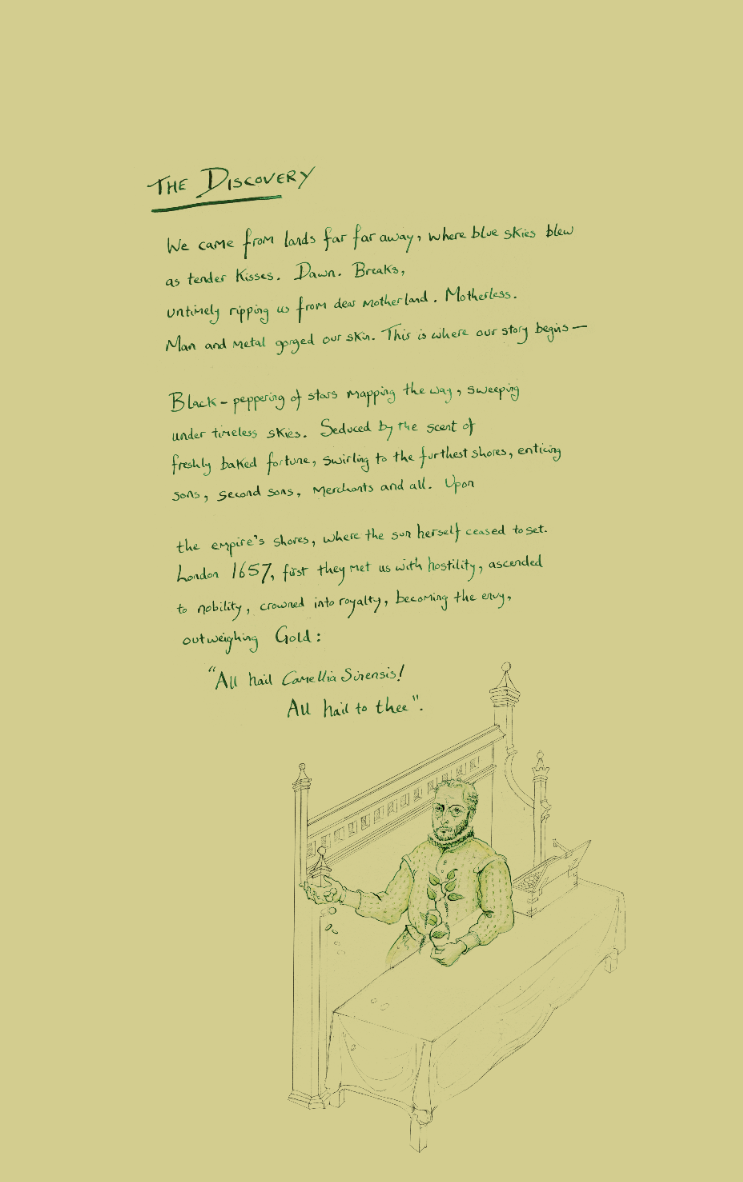 THE DISCOVERY
We came from lands far far away, where blue skies blew
as tender kisses. Dawn. Breaks,
untimely ripping us from dear motherland. Motherless.
Man and metal gorged our skin. This is where our story begins —
Black – peppering of stars mapping the way, sweeping
under timeless skies. Seduced by the scent of
freshly baked fortune, swirling to the furthest shores, enticing
sons, second sons, merchants and all. Upon
the empire's shores, where the sun herself ceased to set.
London 1657, first they met us with hostility, ascended
to nobility, crowned into royalty, becoming the envy,
outweighing Gold:
"All hail Camellia Sinensis!
All hail to thee".